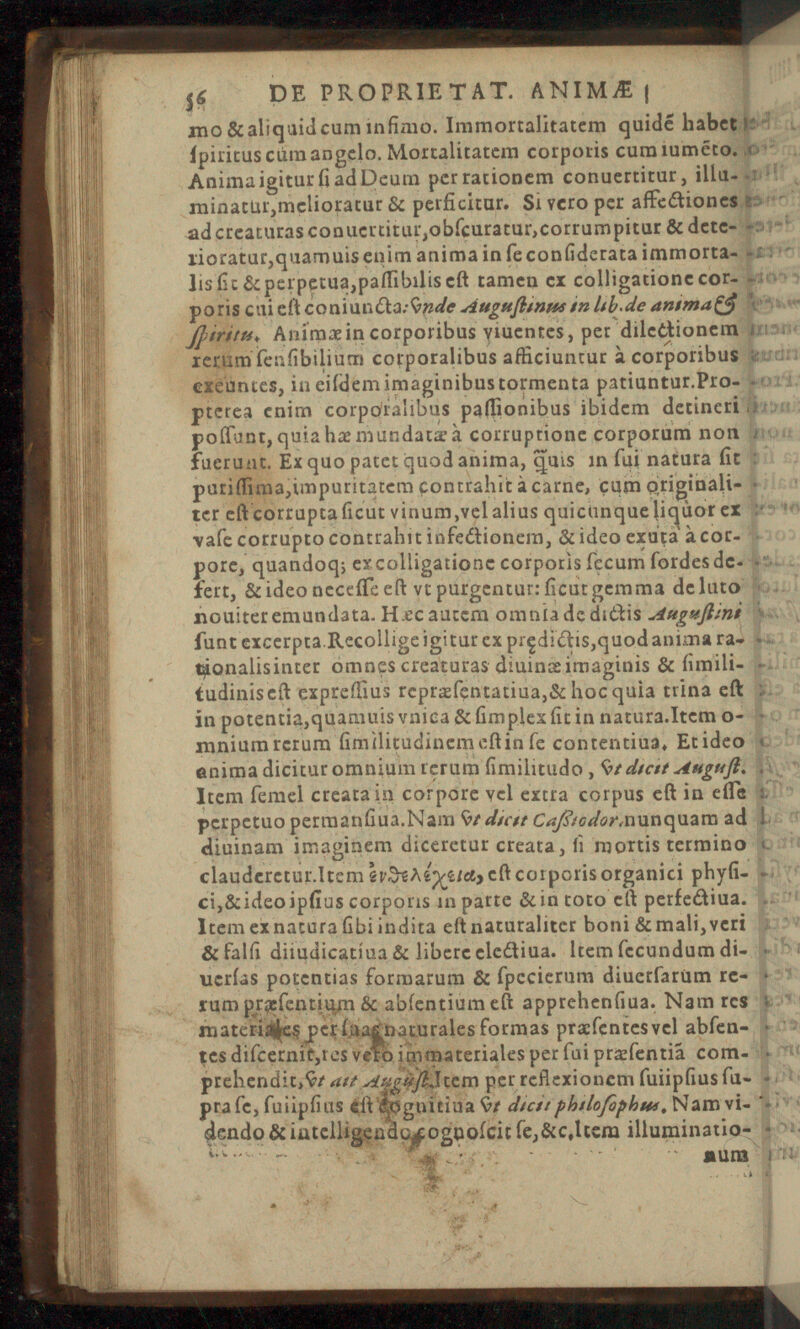 56 DE PROPRIETAT. ANIMÆ
mo & aliquid cum infimo. Immortalitatem quidē habet
ſpiritus cùm angelo. Mortalitatem corporis cum iumēto.
Anima igitur ſi ad Deum per rationem conuertitur, illu-
minatur, melioratur & perficitur. Si vero per affectiones
ad creaturas conuertitur, obſcuratur, corrumpitur & dete-
rioratur, quamuis enim anima in ſe conſiderata immorta-
lis ſit & perpetua, paſſibilis eſt tamen ex colligatione cor-
poris cui eſt coniuncta: Vnde Auguſtinus in lib. de anima &
ſpiritu. Animæ in corporibus viuentes, per dilectionem
rerum ſenſibilium corporalibus afficiuntur à corporibus
exeuntes, in eiſdem imaginibus tormenta patiuntur. Pro-
pterea enim corporalibus paſſionibus ibidem detineri
poſſunt, quia hæ mundatæ à corruptione corporum non
fuerunt. Ex quo patet quod anima, q̃uis in ſui natura ſit
puriſſima, impuritatem contrahit à carne, cum originali-
ter eſt corrupta ſicut vinum, vel alius quicunque liquor ex
vaſe corrupto contrahit infectionem, & ideo exuta à cor-
pore, quandoq; ex colligatione corporis ſecum ſordes de-
fert, & ideo neceſſe eſt vt purgentur: ſicut gemma de luto
nouiter emundata. Hæc autem omnia de dictis Auguſtini
ſunt excerpta. Recollige igitur ex prędictis, quod anima ra-
tionalis inter omnes creaturas diuinæ imaginis & ſimili-
tudinis eſt expreſſius repræſentatiua, & hoc quia trina eſt
in potentia, quamuis vnica & ſimplex ſit in natura. Item o-
mnium rerum ſimilitudinem eſt in ſe contentiua, Et ideo
anima dicitur omnium rerum ſimilitudo, vt dicit Auguſt.
Item ſemel creata in corpore vel extra corpus eſt in eſſe
perpetuo permanſiua. Nam vt dicit Caſſiodor. nunquam ad
diuinam imaginem diceretur creata, ſi mortis termino
clauderetur. Item ἐνδελέχεια, eſt corporis organici phyſi-
ci, & ideo ipſius corporis in parte & in toto eſt perfectiua.
Item ex natura ſibi indita eſt naturaliter boni & mali, veri
& falſi diiudicatiua & libere electiua. Item ſecundum di-
uerſas potentias formarum & ſpecierum diuerſarum re-
rum præſentium & abſentium eſt apprehenſiua. Nam res
materiales per imag. naturales formas præſentes vel abſen-
tes diſcernit, res vero immateriales per ſui præſentiā com-
prehendit, vt ait Auguſt. Item per reflexionem ſui ipſius ſu-
pra ſe, ſui ipſius eſt cognitiua vt dicit philoſophus. Nam vi-
dendo & intelligendo cognoſcit ſe, &c. Item illuminatio-
num